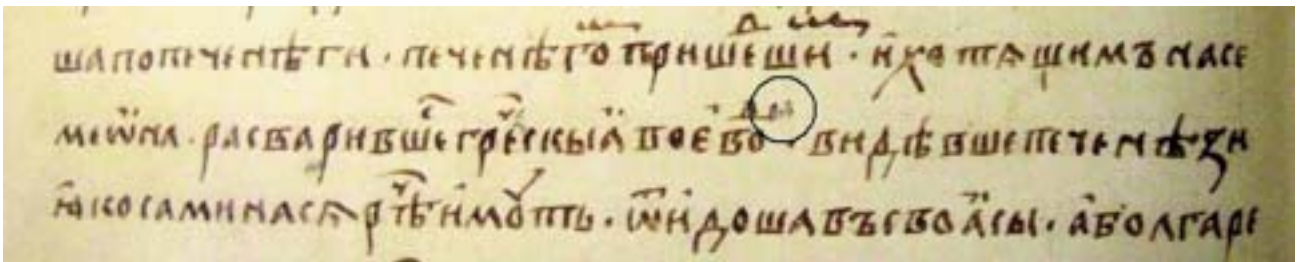 шапопеченѣги · печенѣгоⷨ пришеⷣшиⷨ · и҆хотѧщимъ насе
меѡна · расваривше греⷱскыӓ воево · видѣвше печенѣзи
ꙗкосами насѧ рѣⷮ имѹть · ѿидоша въсвоӓсы · аболгаре